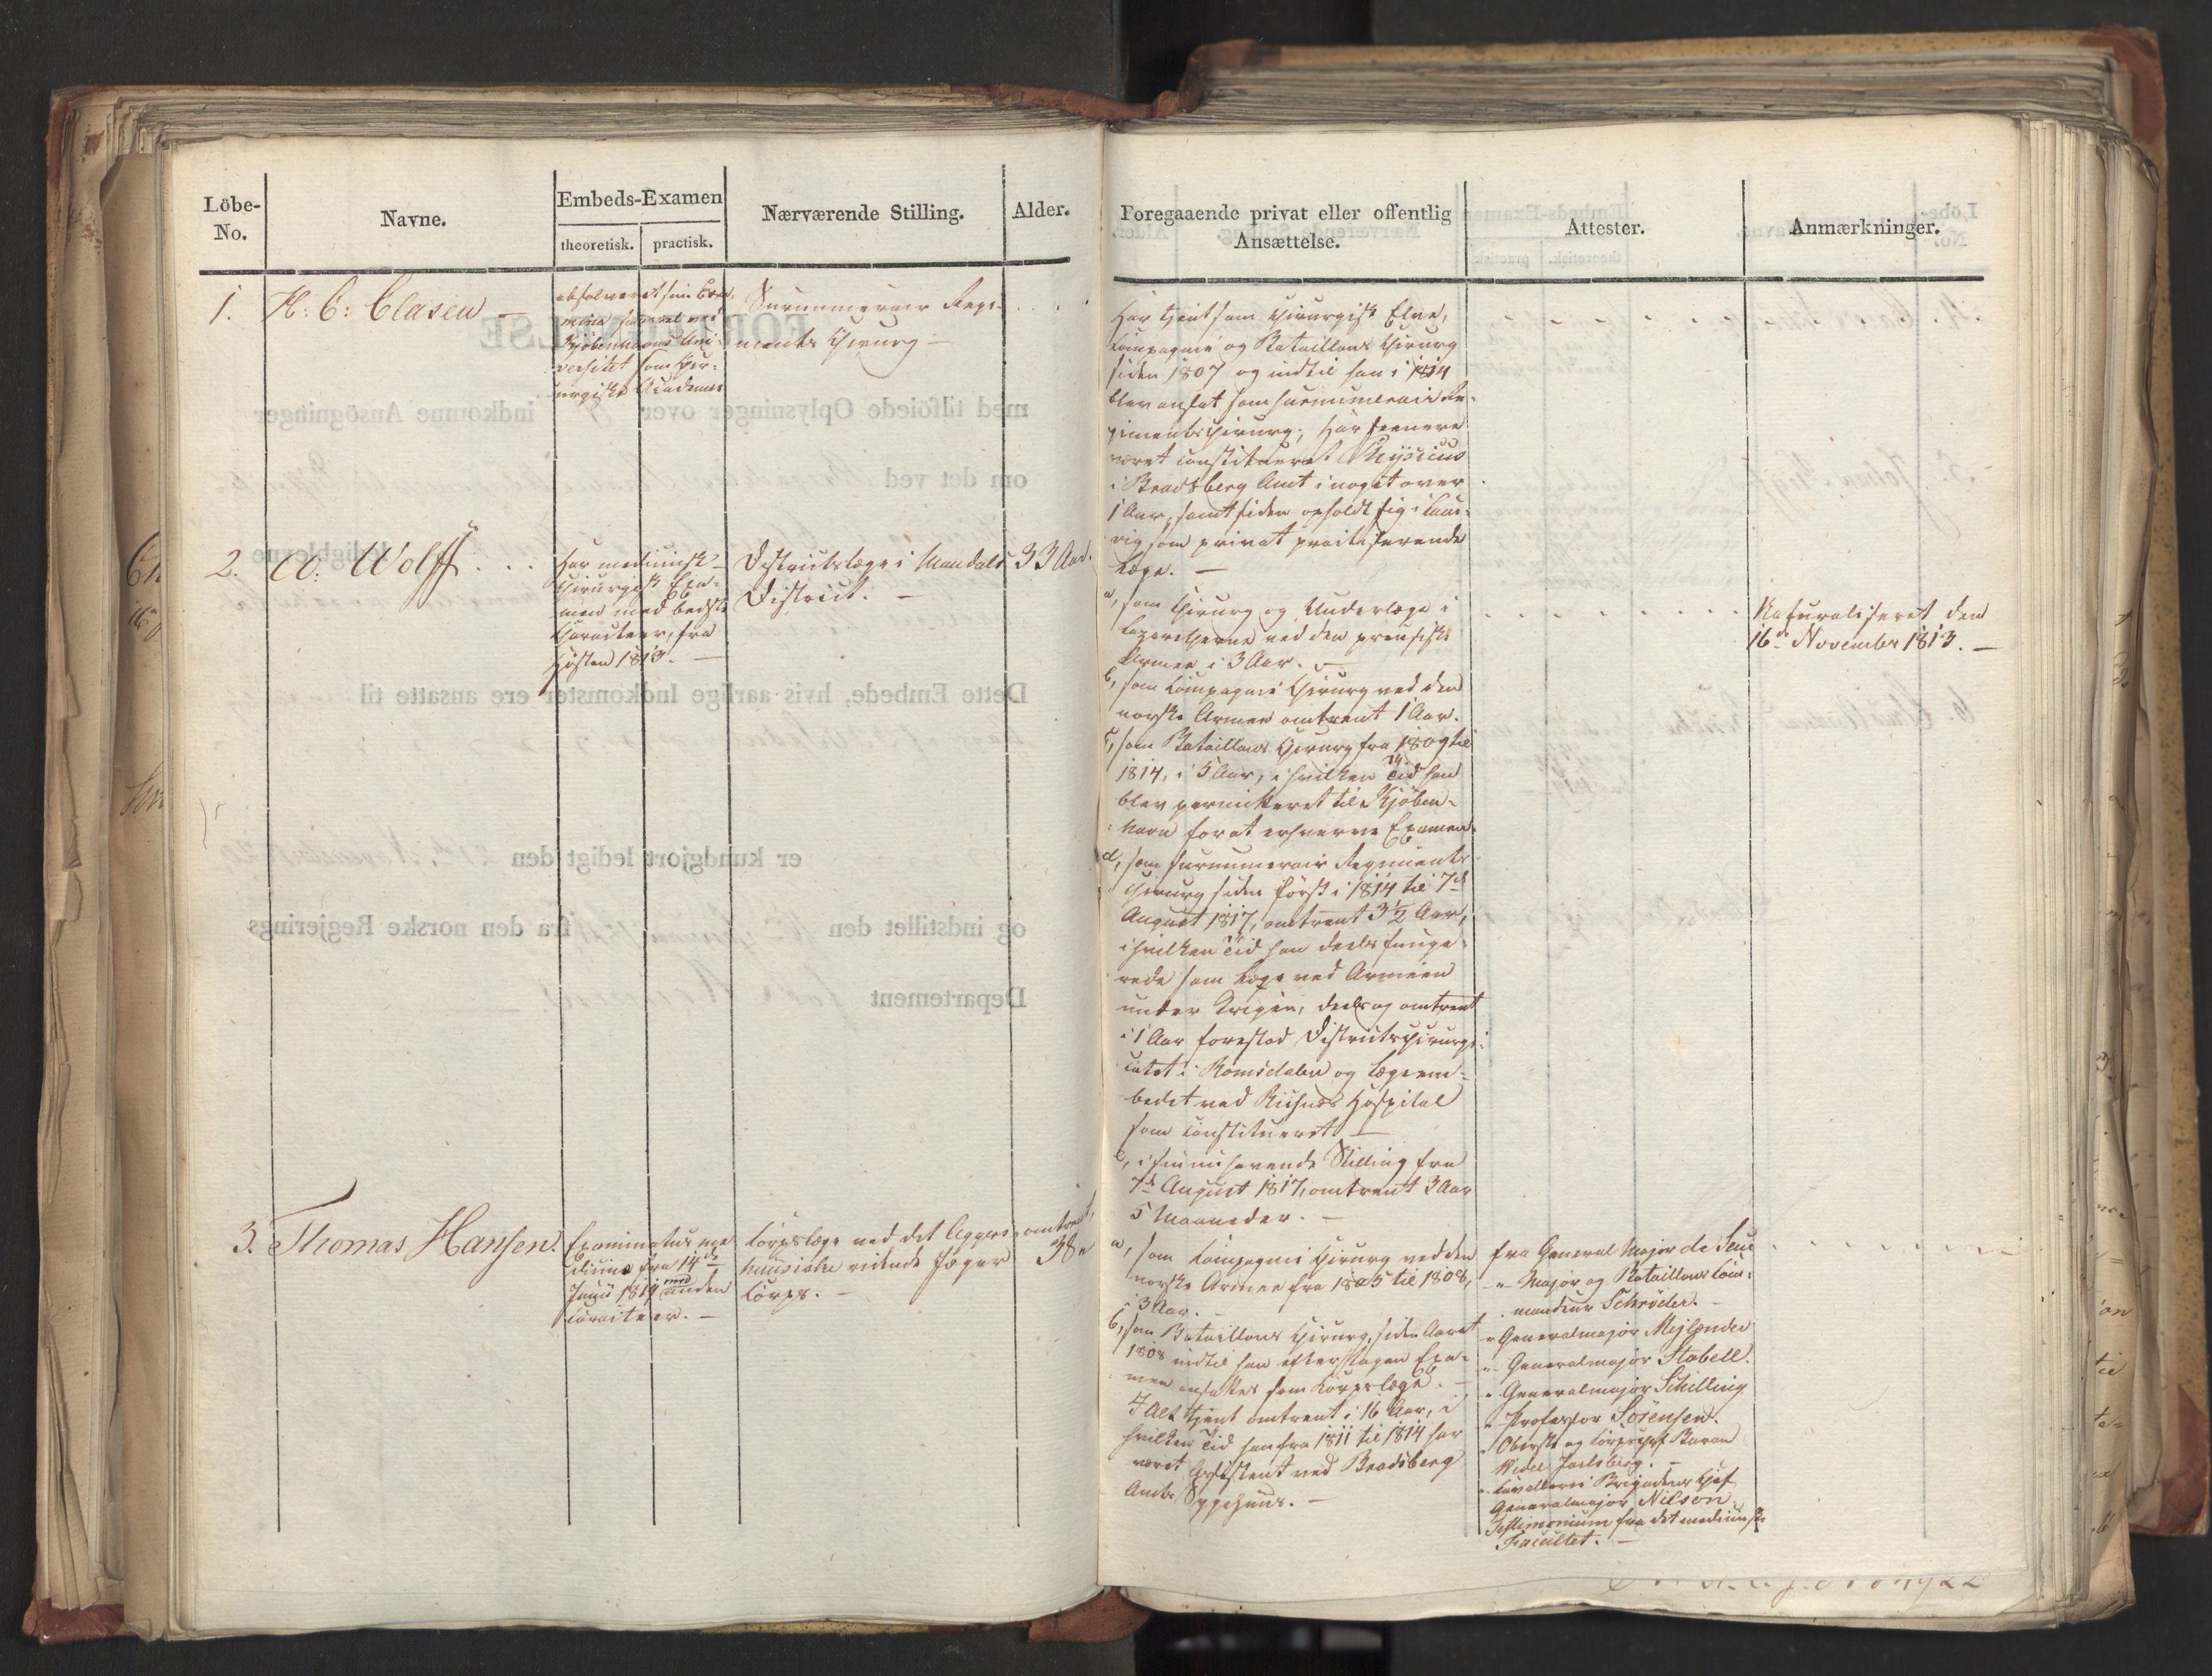 Löbe-
No.
Navne.
Embeds-Examen
theoretisk. practisk.
Nærværende Stilling.
Alder.
1. H: C: Clasen
absolveret sin Exa-
mina saavel ved
Kjøbenhavns Uni-
versitet som chir-
urgiske Academie
Surnumerair Regi-
ments Chirurg
2. W: Wolff
Har medicinsk-
chirurgisk Exa-
men med bedste
Characteer, fra
Høsten 1813.
Districtslæge i Mandals
District.
33 Aar.
3. Thomas Hansen.
Examinatus me-
dicinæ fra 14de
Junii 1819 med anden
Caracteer.
Corpslæge ved det Aggers-
huusiske ridende Jæger
Corps.
omtrent
38
Foregaaende privat eller offentlig
Ansættelse.
Attester.
Anmærkninger.
Har tjent som chirurgisk Elev,
Compagnie og Bataillons Chirurg
siden 1807 og indtil han i 1814
blev ansat som surnumerair Re-
gimentschirurg; Har senere
været constitueret Physicus
i Bradsberg Amt i noget over
1 Aar, samt siden opholdt sig i Laur-
vig som privat practiserende
Læge.
a, som Chirurg og Underlæge i
Lazaretherne ved den preusiske
Armee i 3 Aar.
b, som Compagnie Chirurg ved den
norske Armee omtrent 1 Aar.
c, som Bataillons Chirurg fra 1809 til
1814, i 5 Aar, i hvilken Tid han
blev permitteret til Kjøben-
havn for at erhverve Examen.
d, som surnumerair Regiments
Chirurg siden først i 1814 til 7de
August 1817, omtrent 3½ Aar,
i hvilken Tid han deels funge-
rede som Læge ved Armeen
under Krigen, deels og omtrent
i 1 Aar forestod Districtschirurgi-
catet i Romsdalen og Lægeem-
bedet ved Hospital
som constitueret
e, i sin nu havende Stilling fra
7de August 1817, omtrent 3 Aar
5 Maaneder.
a, som Compagnie Chirurg ved den
norske Armee fra 1805 til 1808,
i 3 Aar.
b, som Bataillons Chirurg, siden Aaret
1808 indtil han efter tagen Exa-
men ansattes som Corpslæge.
I Alt tjent omtrent i 16 Aar, i
hvilken Tid han fra 1811 til 1814 har
været Assistent ved Bradsberg
Amts Sygehuus.
fra General Major de Seue
" Major og Bataillons Com-
mandeur Schrøder.
" Generalmajor Mejlænder
" Generalmajor Stabell.
" Generalmajor Schilling
" Professor Sørensen.
" Oberste og Corpschef Baron
Wedel Jarlsberg.
" Cavallerie Brigadens Chef
Generalmajor Nilson
Testimonium fra det medicinske
Facultet.
Naturaliseret den
16de November 1813.